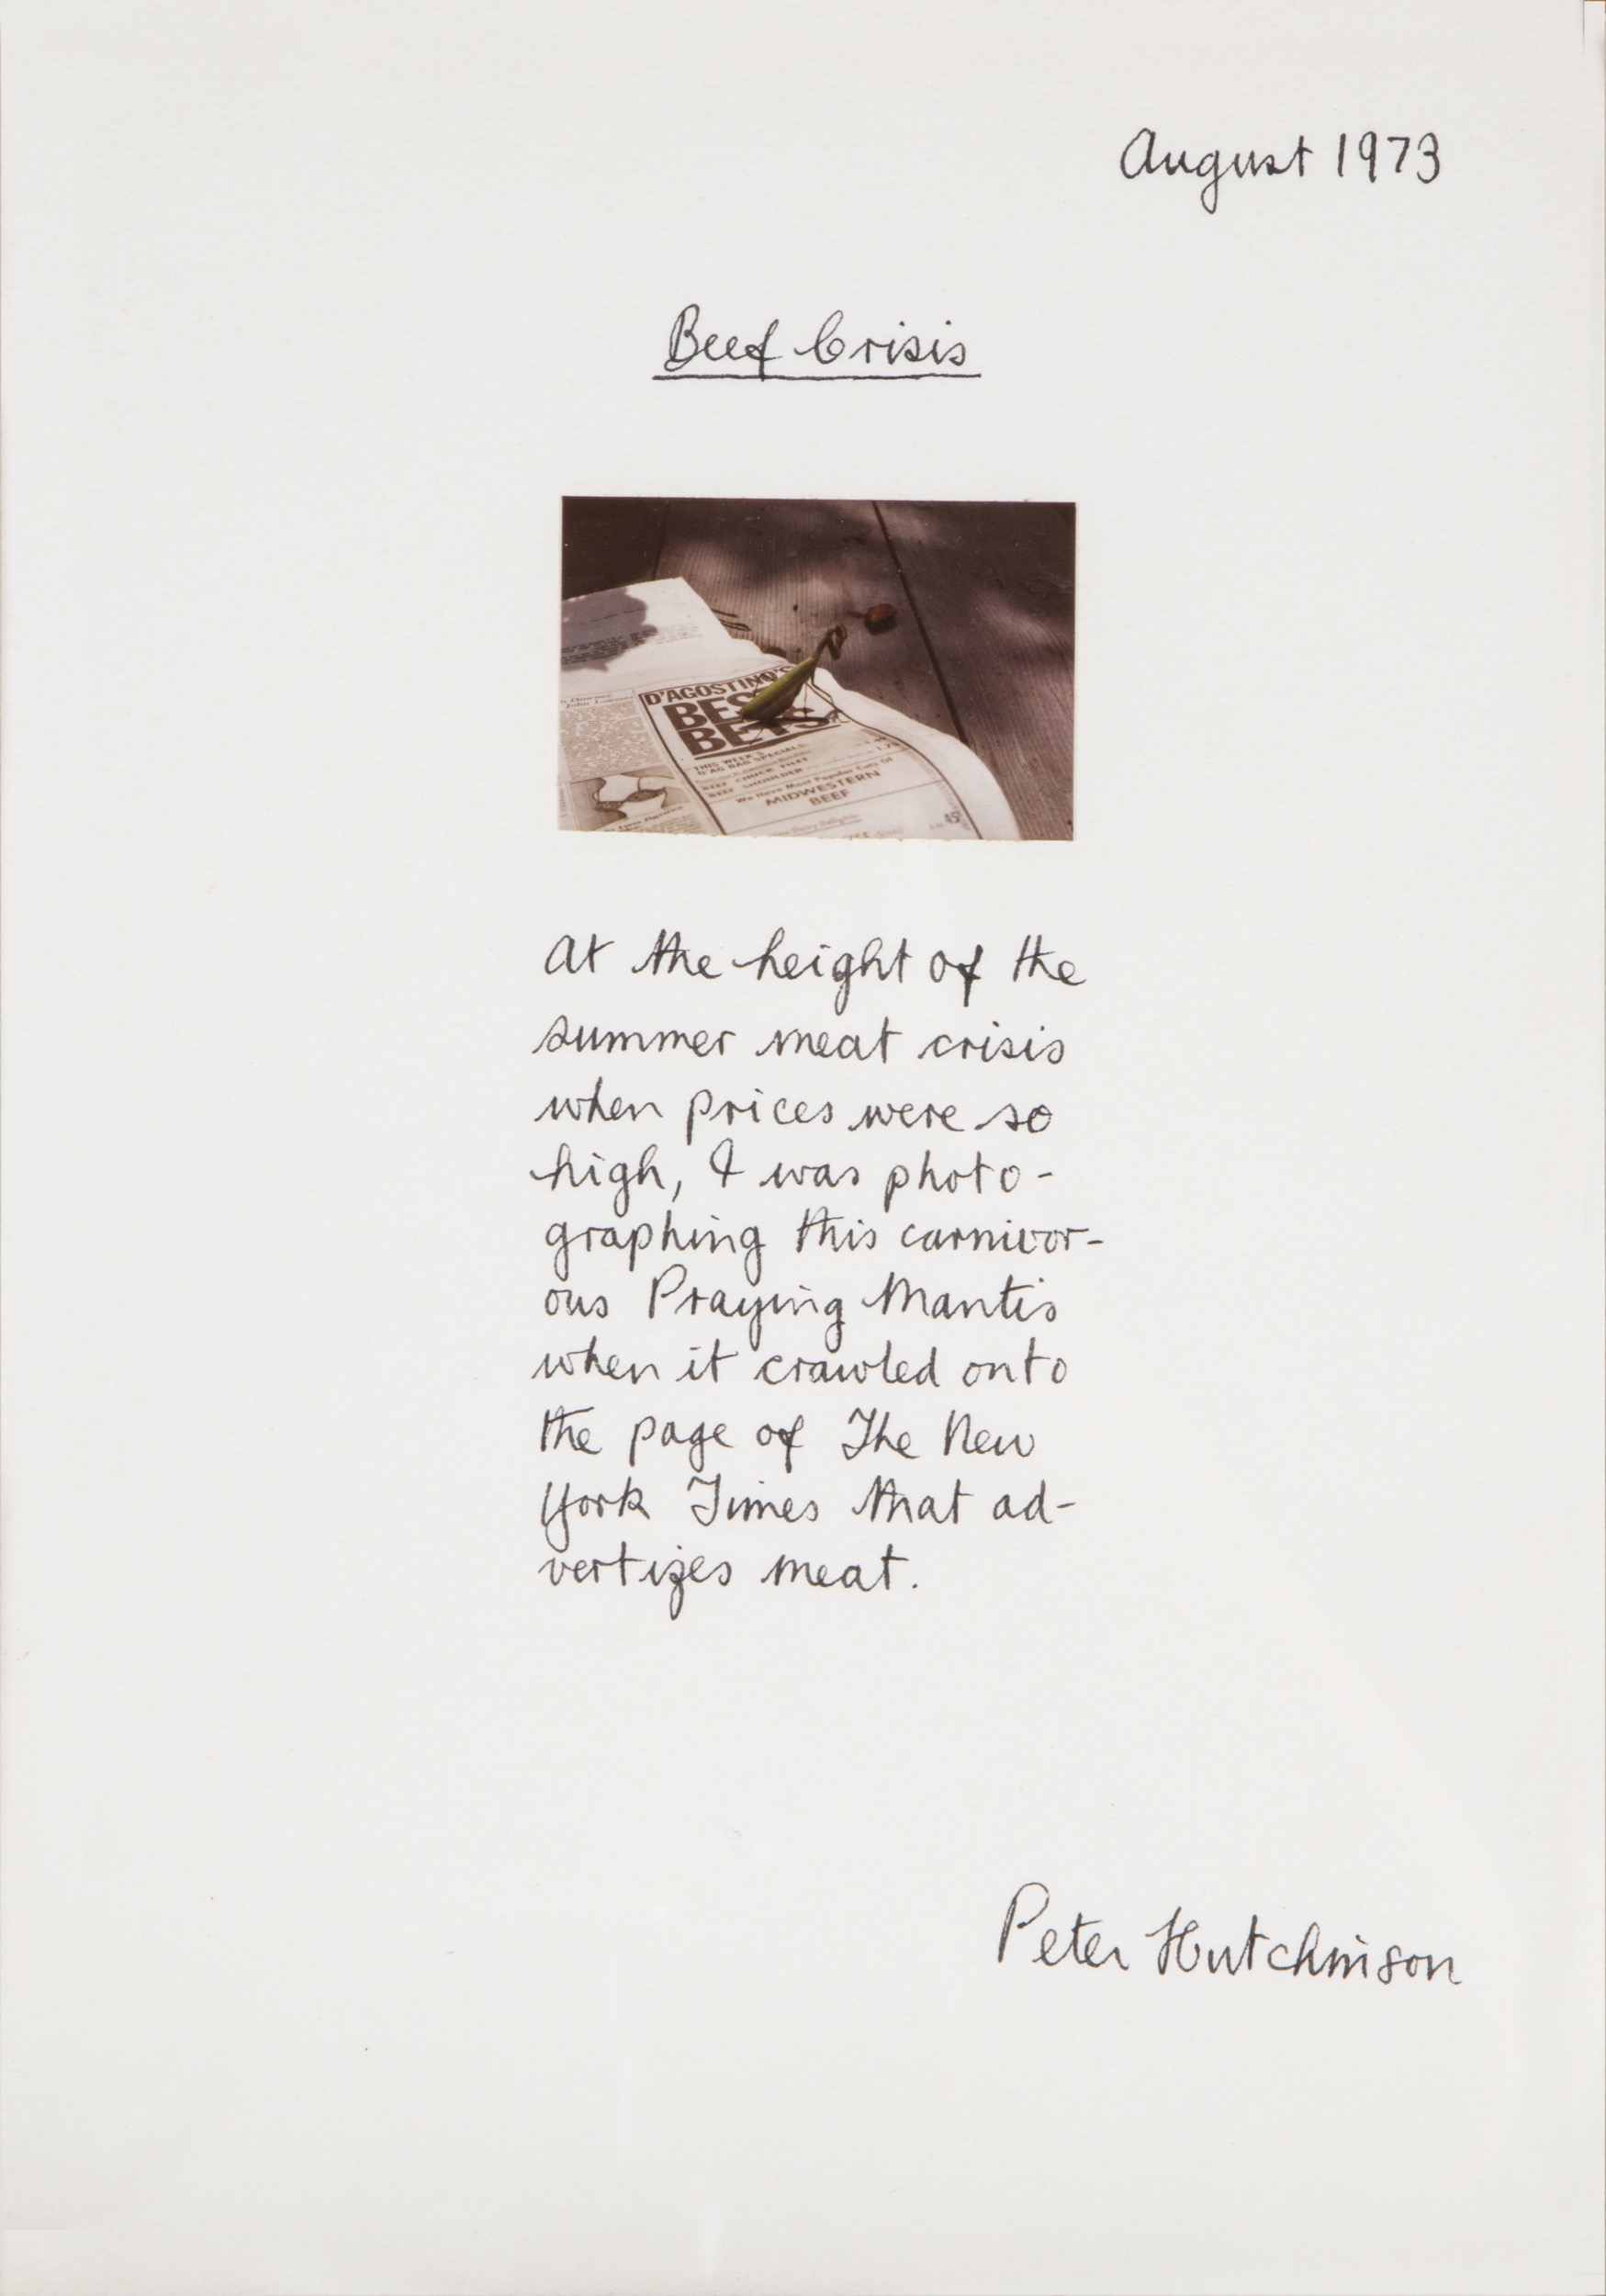 August 1973
Beef Crisis
D'AGOSTINO'S
BEST
BETS
THIS WEEK'S
D'AG BAG SPECIALS:
BEEF CHUCK FILET
BEEF SHOULDER
We Have Most Popular Cuts Of
MIDWESTERN
BEEF
45
At the height of the
summer meat crisis
when prices were so
high, I was photo-
graphing this carnivor-
ous Praying Mantis
when it crawled onto
the page of The New
York Times that ad-
vertizes meat.
Peter Hutchinson